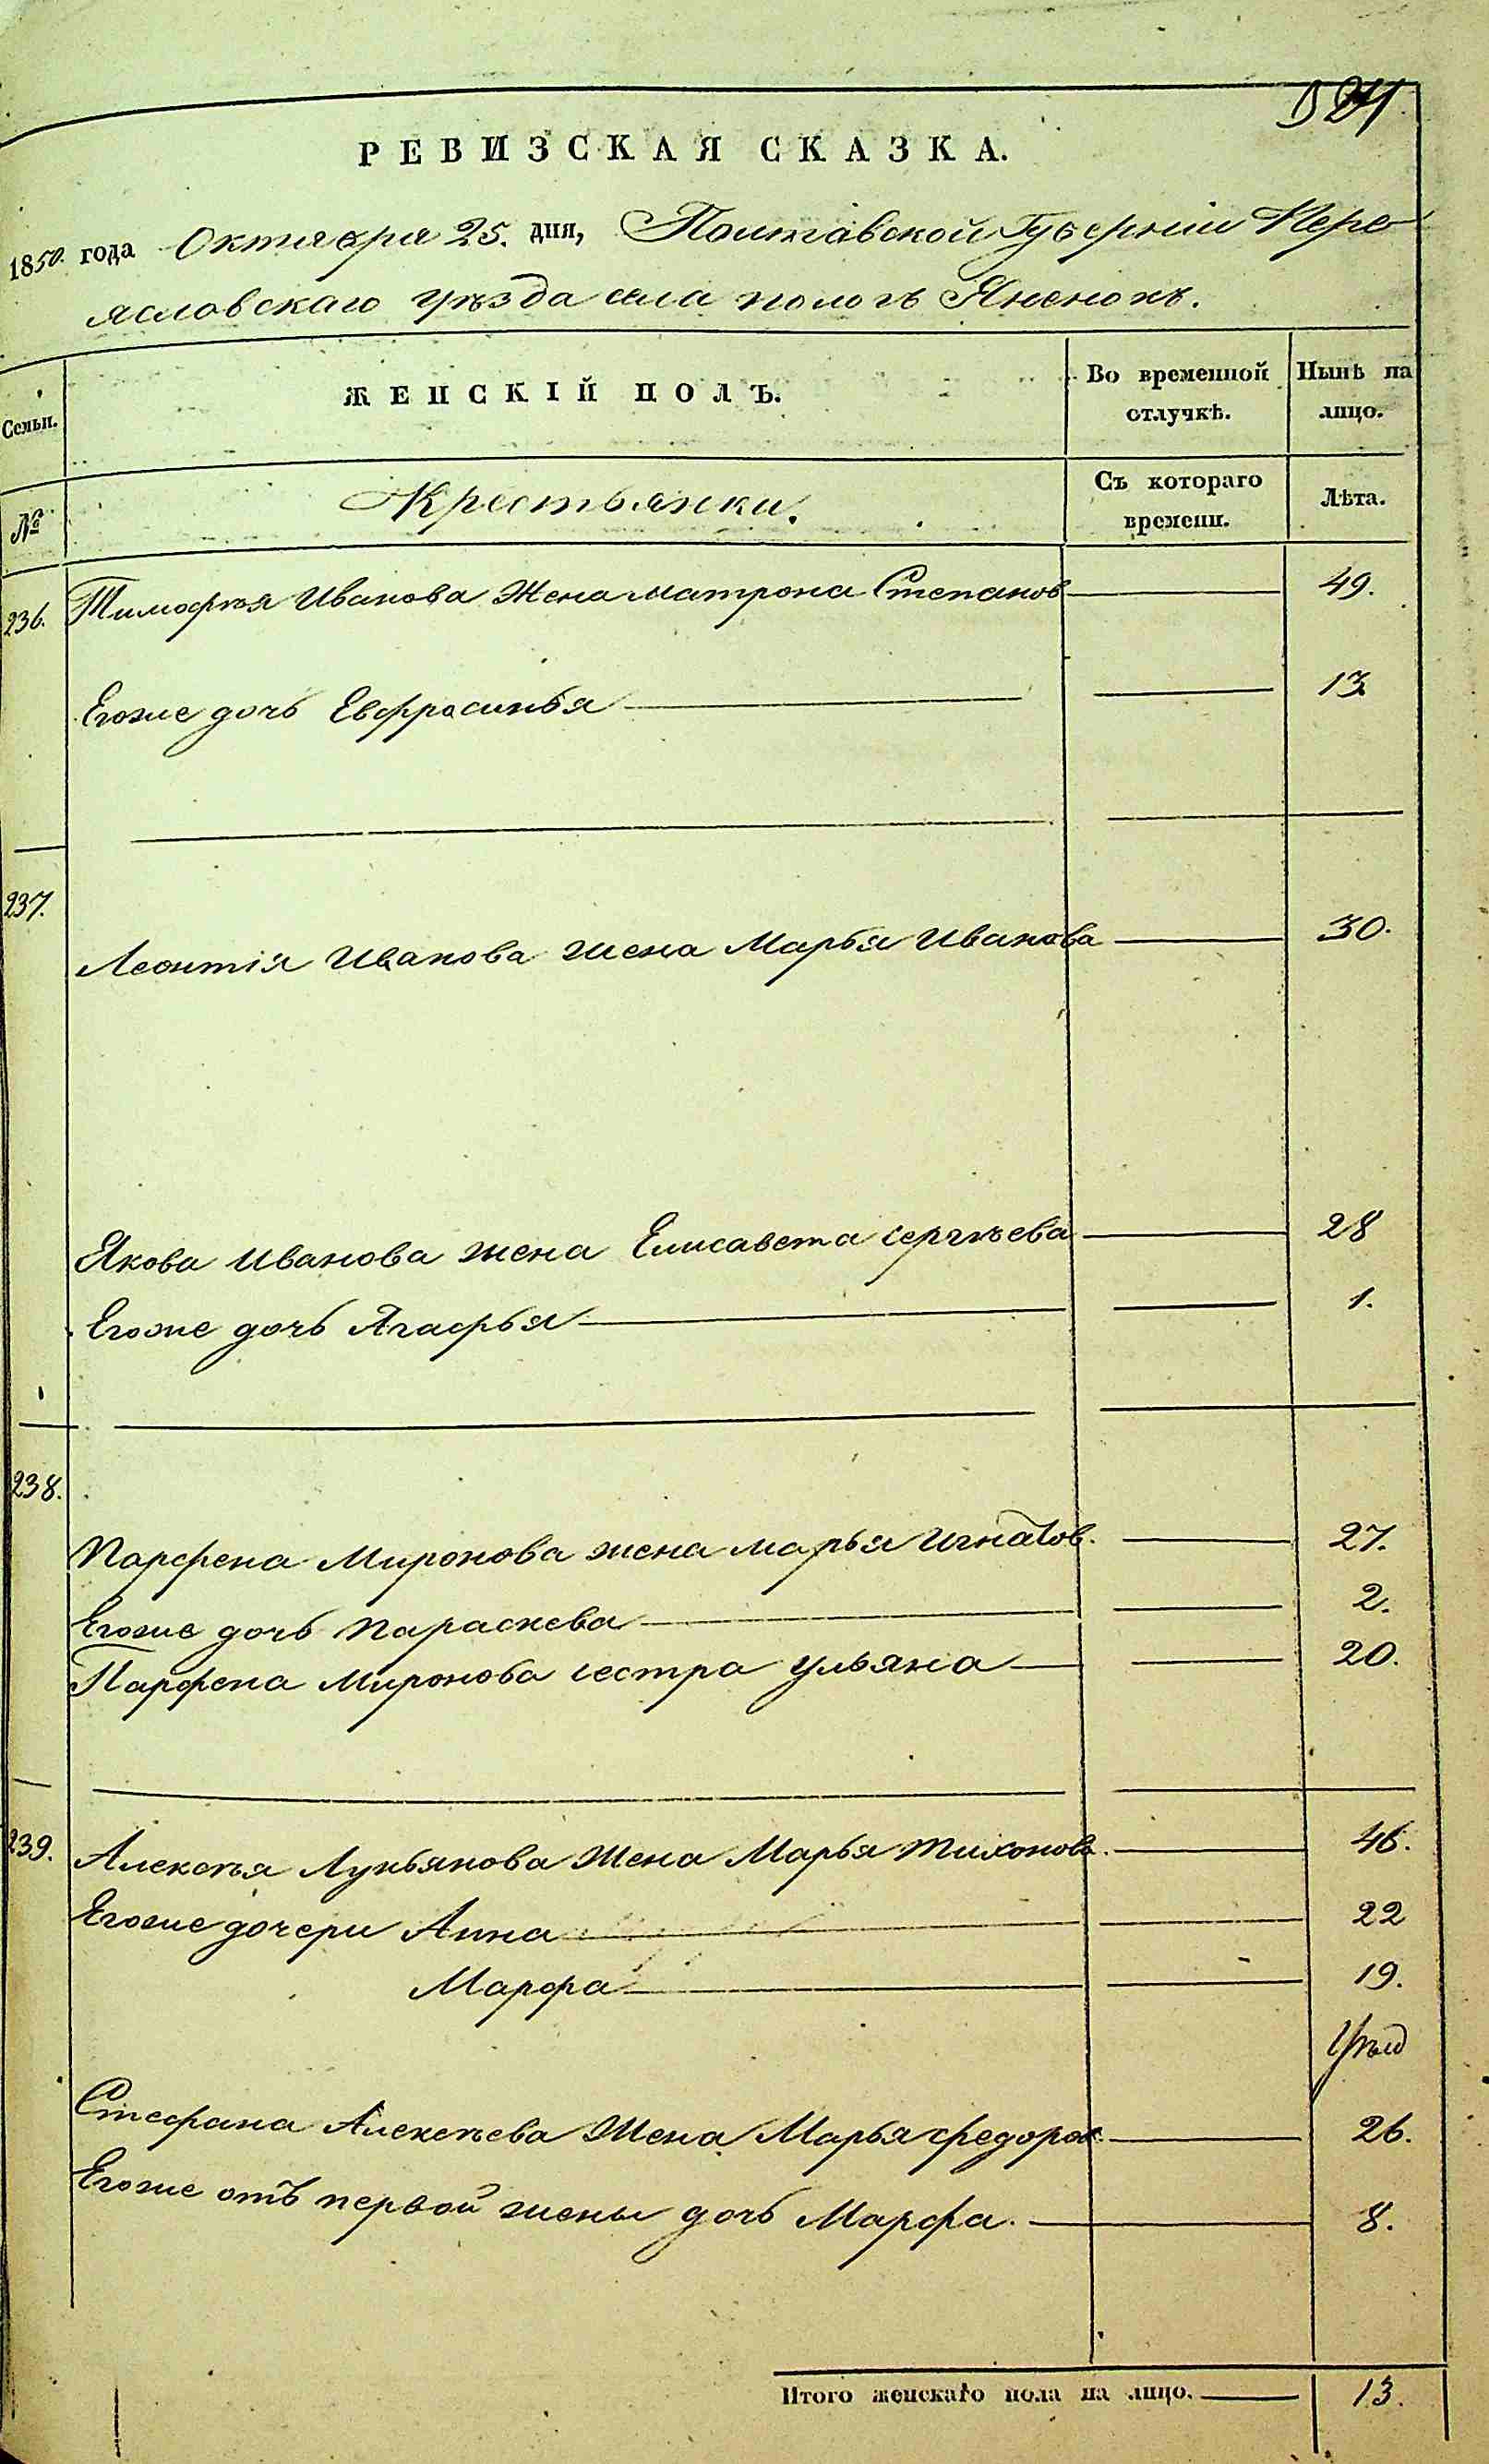 РЕВИЗСКАЯ СКАЗКА.
1850. года Октября 25. дня, Полтавской Губерніи Пере
ясловскаго уѣзда села пологъ Яненокъ.
Семьи. ЖЕНСКІЙ ПОЛЪ. Во временной отлучкѣ. Нынѣ на лицо.
№ Крестьянки. Съ котораго времени. Лѣта.
236. Тимофѣя Иванова Жена Матрона Степанов 49.
Егоже дочь Евфросинья 13
237. Леонтія Иванова жена Марья Иванова 30.
Якова Иванова жена Елисавета Сергѣева 28
Егоже дочь Агафья 1.
238. Парфена Миронова жена марья Игнатов. 27.
Егоже дочь Параскева 2.
Парфена Миронова сестра ульяна 20.
239. Алексѣя Лукьянова Жена Марья Тихонова. 46.
Егоже дочери Анна 22
Марфа 19.
Стефана Алексѣева Жена Марья Федоров. 26.
Егоже отъ первой жены дочь Марфа. 8.
Итого женскаго пола на лицо. 13.